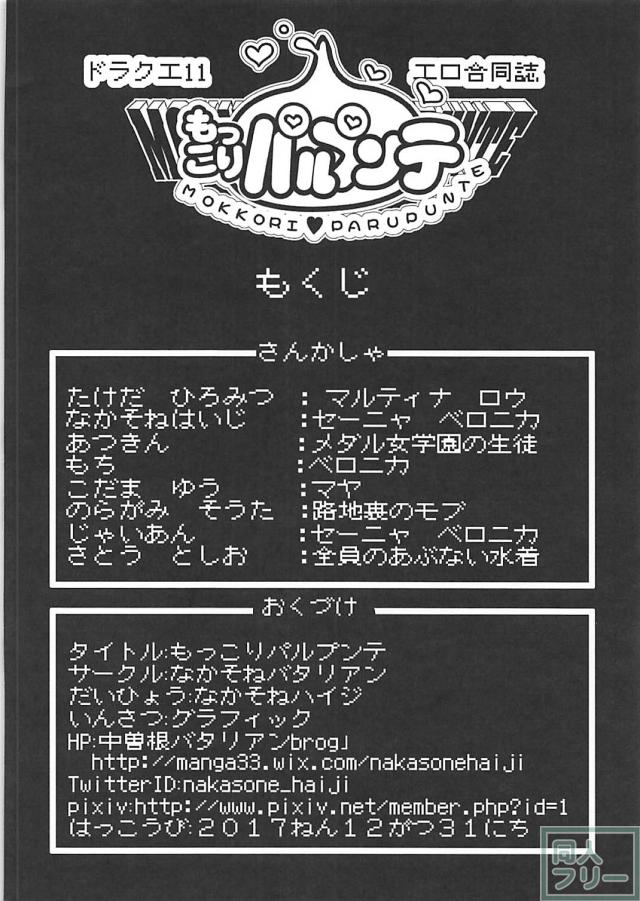 ドラクエ11
エロ合同誌
もっこりパルプンテ
MOKKORI♥PARUPUNTE
もくじ
さんかしゃ
たけだ ひろみつ : マルティナ ロウ
なかそねはいじ :セーニャ ベロニカ
あつきん :メダル女学園の生徒
もち :ベロニカ
こだま ゆう :マヤ
のらがみ そうた :路地裏のモブ
じゃいあん :セーニャ ベロニカ
さとう としお :全員のあぶない水着
おくづけ
タイトル:もっこりパルプンテ
サークル:なかそねバタリアン
だいひょう:なかそねハイジ
いんさつ:グラフィック
HP:中曽根バタリアンbrog」
http://manga33.wix.com/nakasonehaiji
TwitterID:nakasone_haiji
pixiv:http://www.pixiv.net/member.php?id=1
はっこうび:2017ねん12がつ31にち
同人
フリー